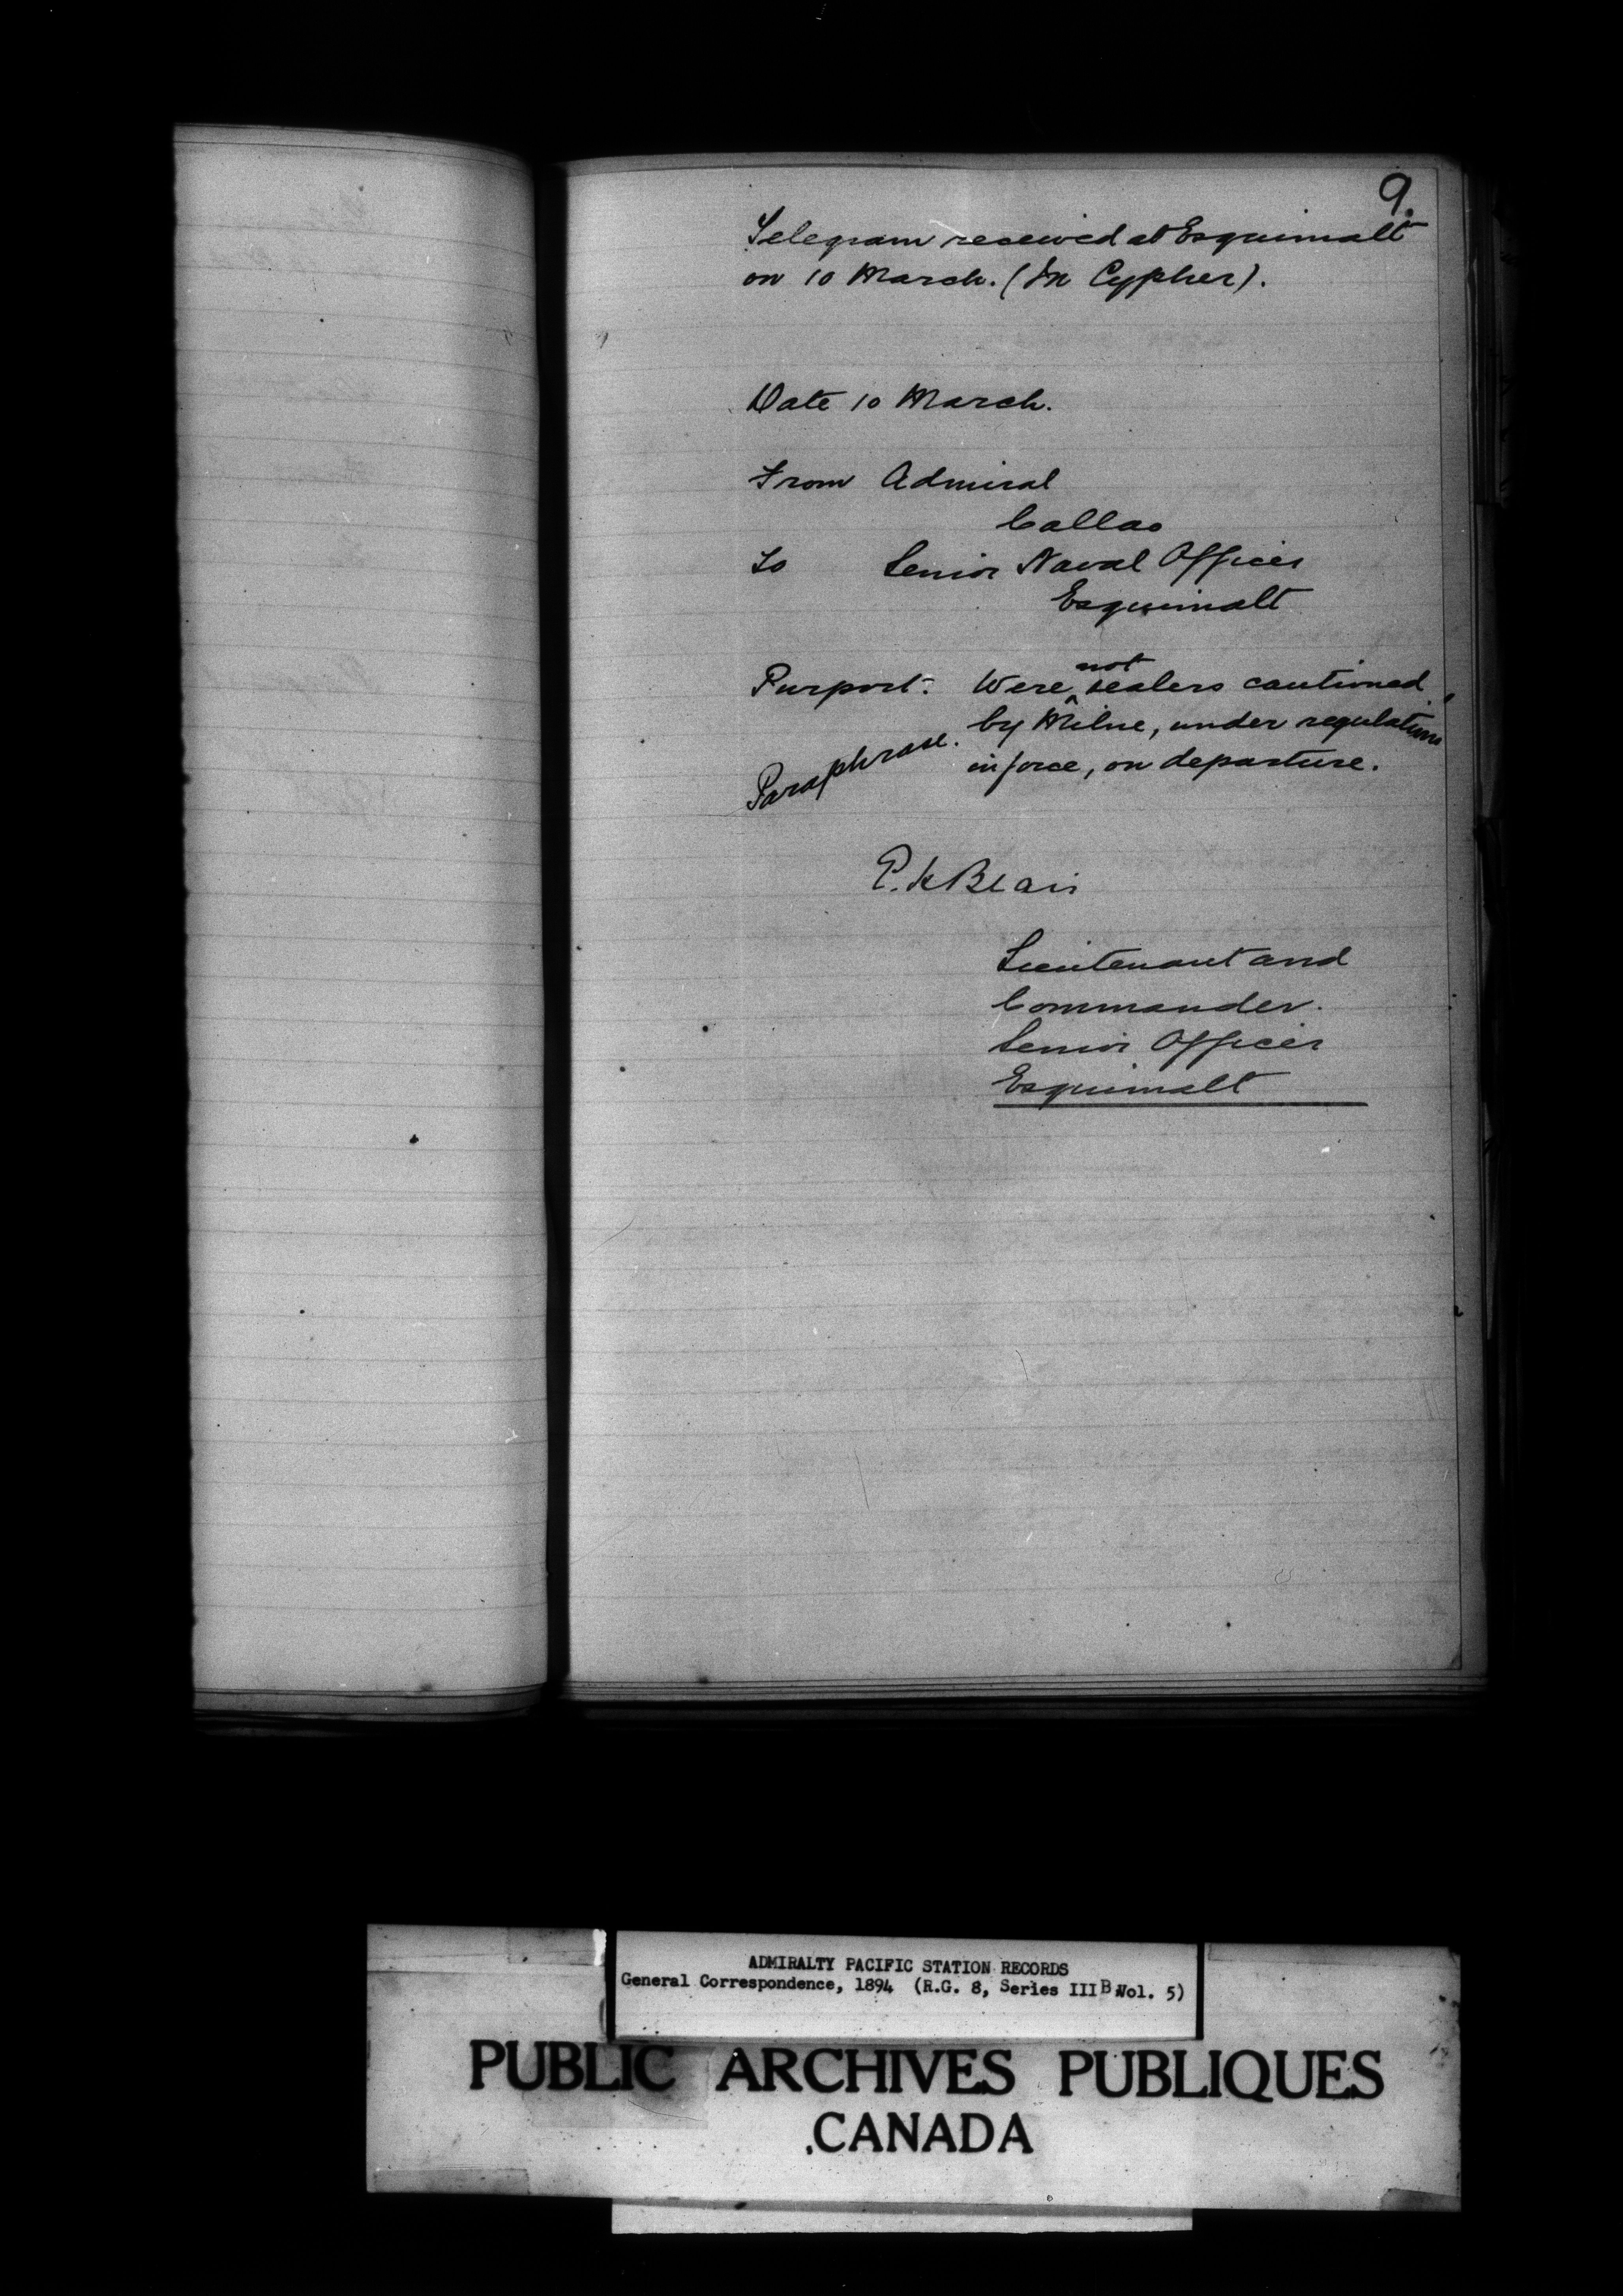 9.
Telegram received at Esquimalt
on 10 March. (In Cypher).
Date 10 March.
From Admiral
Callao
To Senior Naval Officer
Esquimalt
Purport: Were not sealers cautioned
by Milne, under regulations
Paraphrase. in force, on departure.
P. K Blair
Lieutenant and
Commander.
Senior Officer
Esquimalt
ADMIRALTY PACIFIC STATION RECORDS
General Correspondence, 1894 (R.G. 8, Series III B Vol. 5)
PUBLIC ARCHIVES PUBLIQUES
CANADA